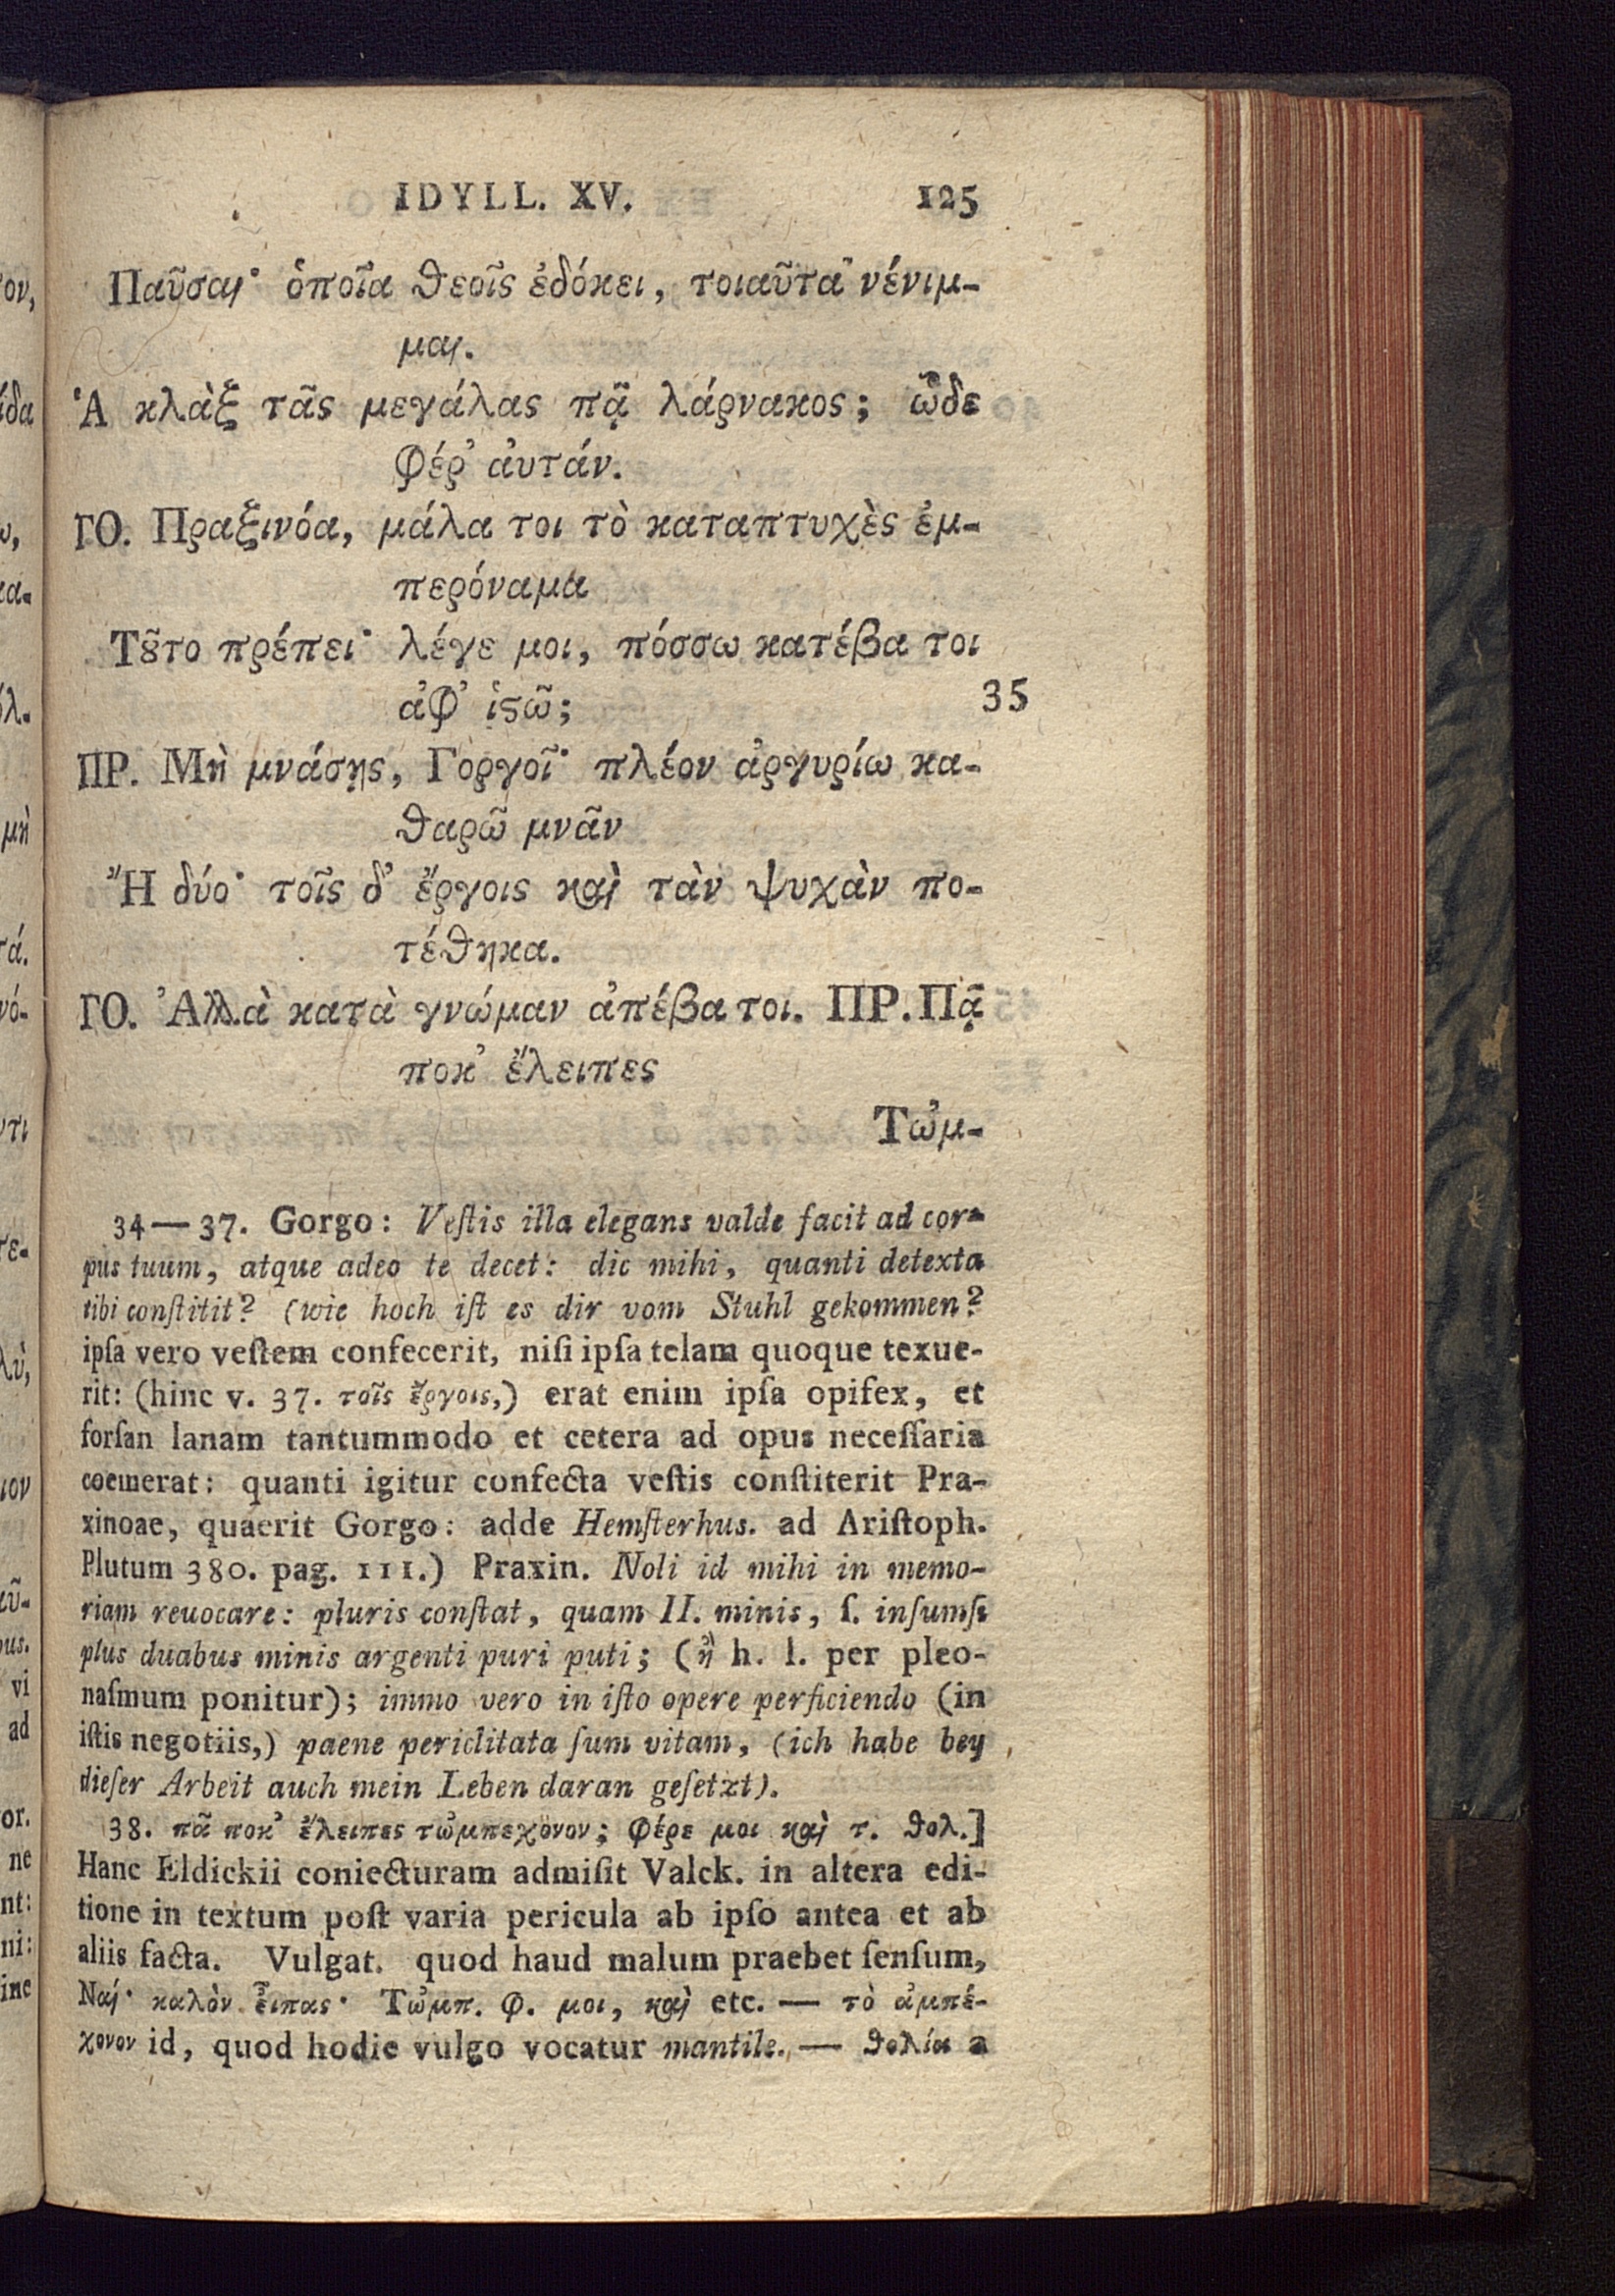 IDYLL. XV. 125
Παῦσαι· ὁποῖα θεοῖς ἐδόκει, τοιαῦτα νένιμ-
μαι.
Ἁ κλὰξ τᾶς μεγάλας πᾷ λάρνακος; ὧδε
φέρ' ἀυτάν.
ΓΟ. Πραξινόα, μάλα τοι τὸ καταπτυχὲς ἐμ-
περόναμα
Τȣ͂το πρέπει· λέγε μοι, πόσσω κατέβα τοι
ἀφ' ἱϛῶ; 35
ΠΡ. Μὴ μνάσῃς, Γοργοῖ· πλέον ἀργυρίω κα-
θαρῶ μνᾶν
Ἢ δύο· τοῖς δ' ἔργοις καὶ τὰν ψυχὰν πο-
τέθηκα.
ΓΟ. Ἀλλὰ κατὰ γνώμαν ἀπέβα τοι. ΠΡ. Πᾷ
ποκ' ἔλειπες
Τὠμ-
34—37. Gorgo: Veſtis illa elegans valde facit ad cor-
pus tuum, atque adeo te decet: dic mihi, quanti detexta
tibi conſtitit? (wie hoch iſt es dir vom Stuhl gekommen?
ipſa vero veſtem confecerit, niſi ipſa telam quoque texue-
rit: (hinc v. 37. τοῖς ἔργοις,) erat enim ipſa opifex, et
forſan lanam tantummodo et cetera ad opus neceſſaria
coemerat: quanti igitur confecta veſtis conſtiterit Pra-
xinoae, quaerit Gorgo: adde Hemſterhus. ad Ariſtoph.
Plutum 380. pag. 111.) Praxin. Noli id mihi in memo-
riam reuocare: pluris conſtat, quam II. minis, ſ. inſumſi
plus duabus minis argenti puri puti; (ἢ h. l. per pleo-
naſmum ponitur); immo vero in iſto opere perficiendo (in
iſtis negotiis,) paene periclitata ſum vitam, (ich habe bey
dieſer Arbeit auch mein Leben daran geſetzt).
38. πᾶ ποκ' ἔλειπες τὠμπεχόνον; φέρε μοι καὶ τ. θολ.]
Hanc Eldickii coniecturam admiſit Valck. in altera edi-
tione in textum poſt varia pericula ab ipſo antea et ab
aliis facta. Vulgat. quod haud malum praebet ſenſum,
Ναί· καλὸν εἶπας· Τὠμπ. φ. μοι, καὶ etc. — τὸ ἀμπέ-
χονον id, quod hodie vulgo vocatur mantile. — θολία a